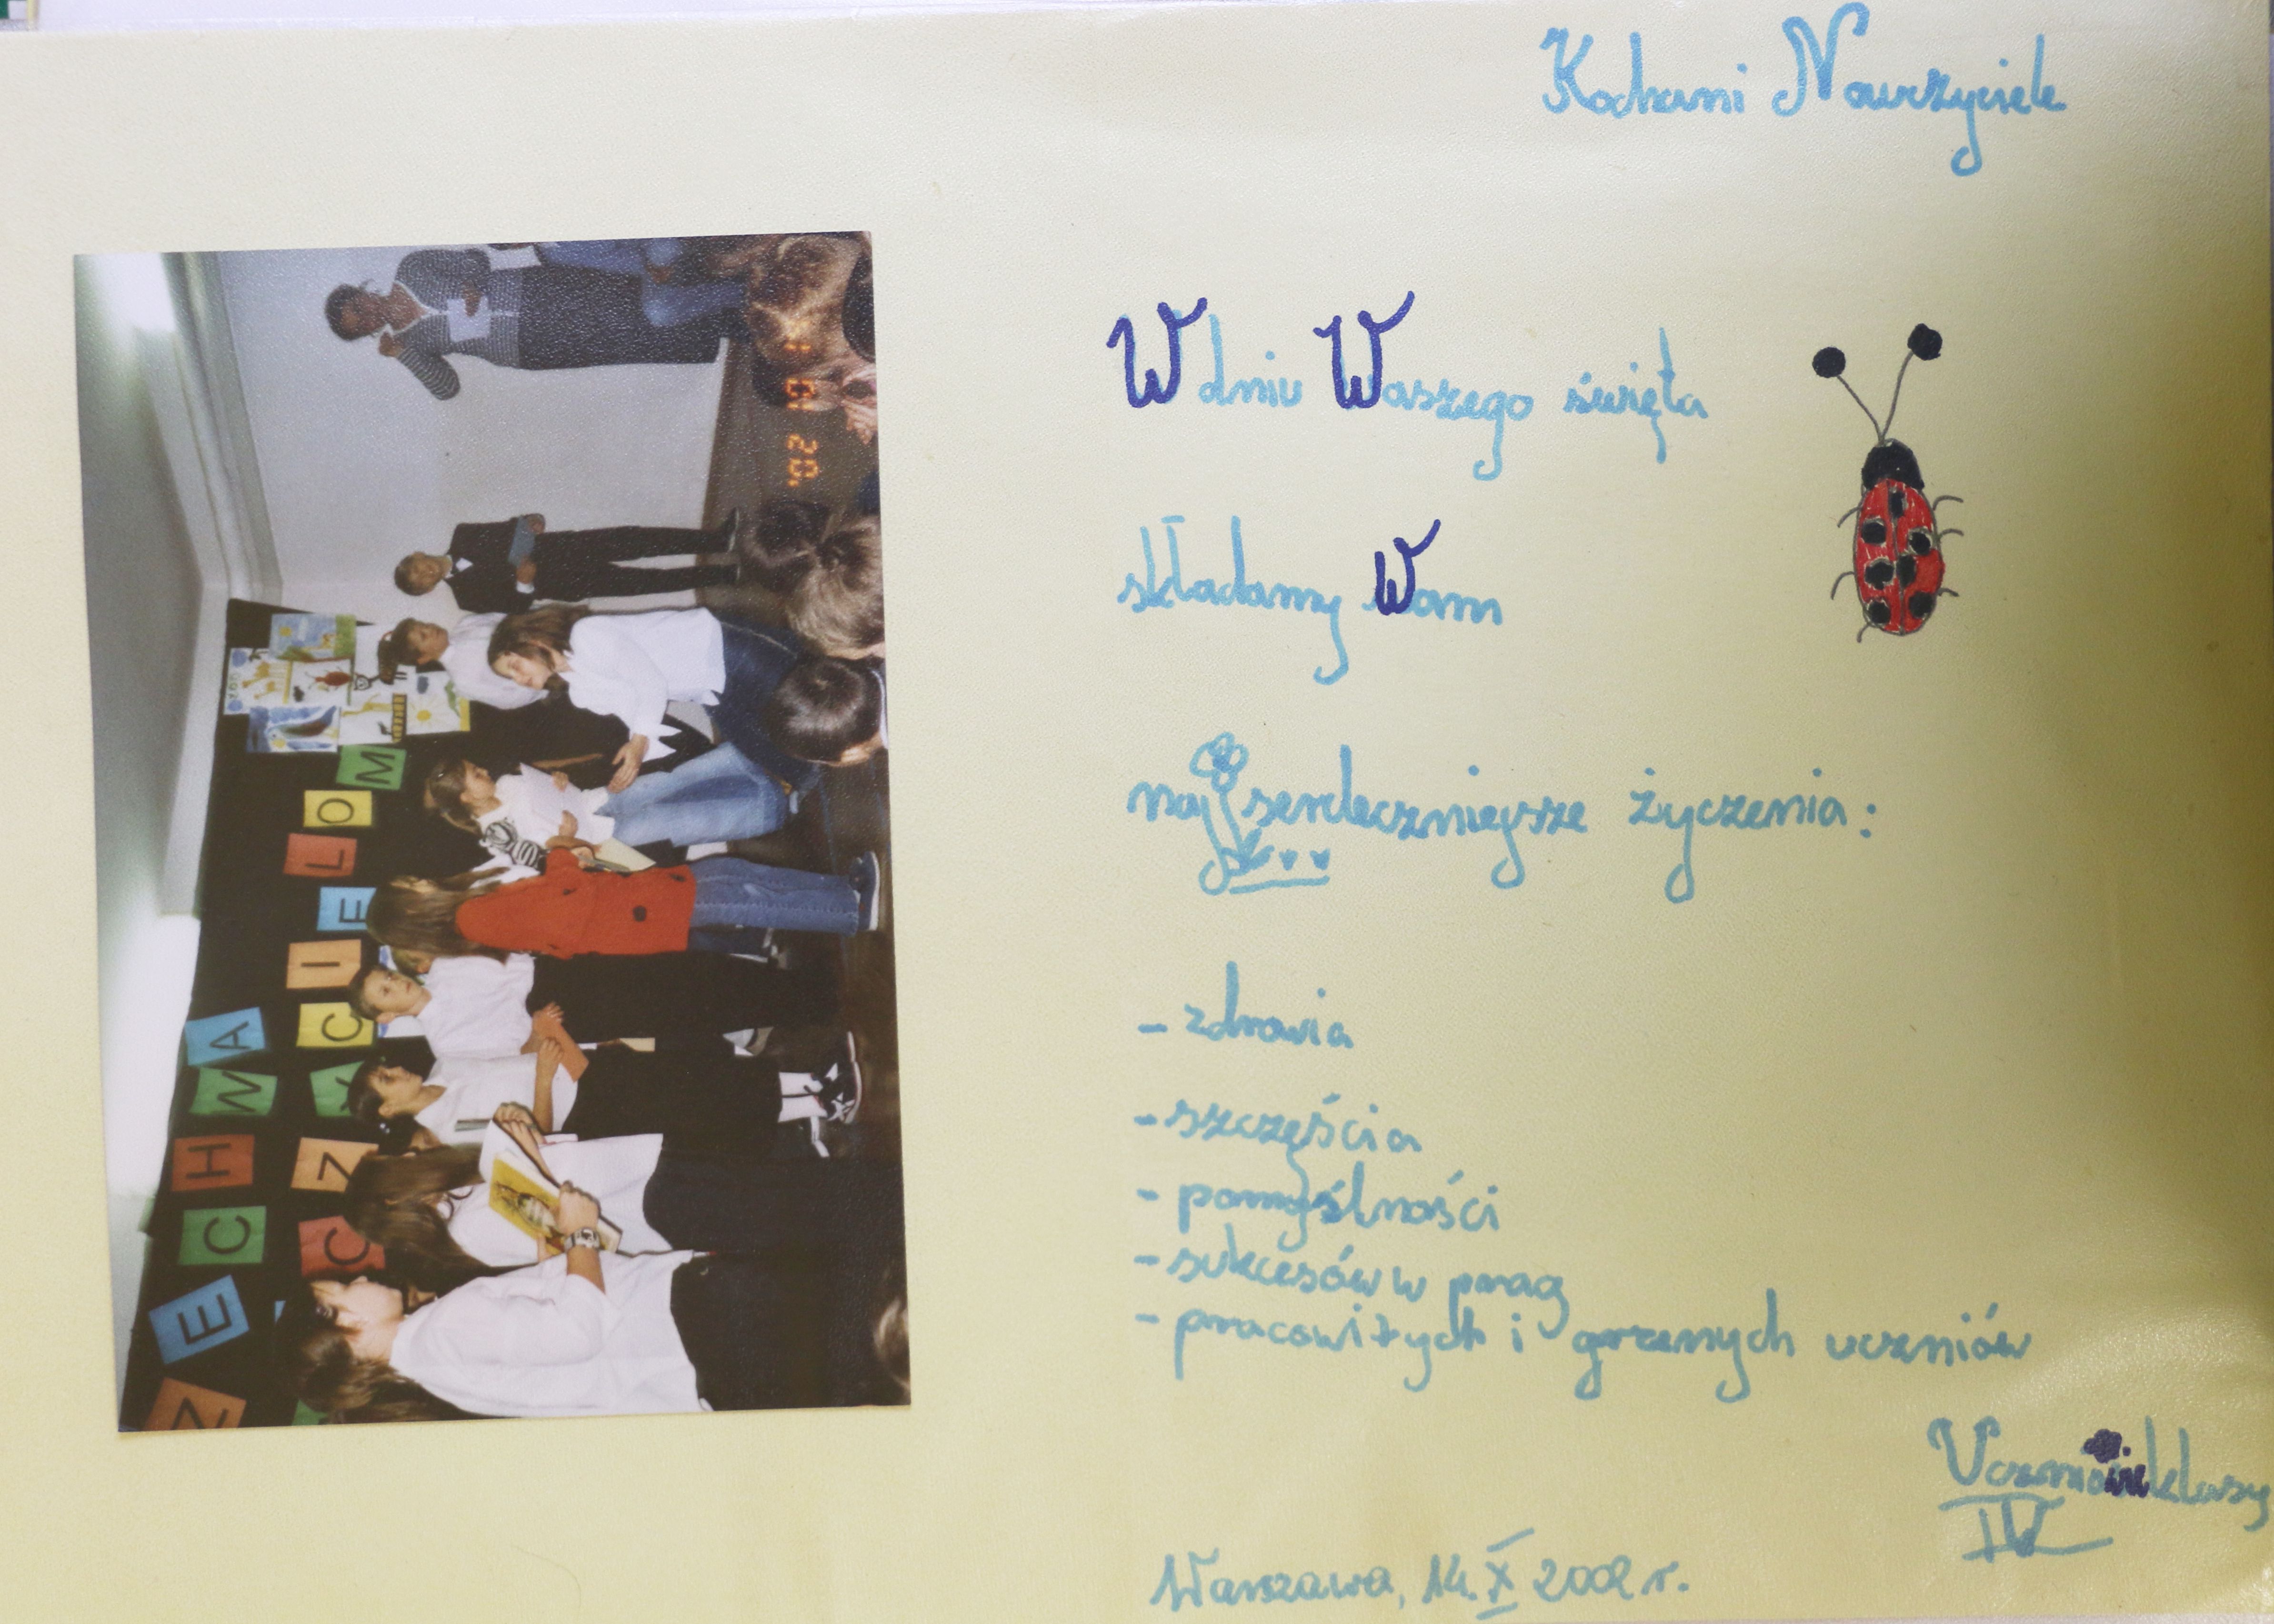 Kochani Nauczyciele
W dniu Waszego święta
składamy Wam
najserdeczniejsze życzenia:
- zdrowia
- szczęścia
- pomyślności
- sukcesów w pracy
- pracowitych i grzecznych uczniów
Uczniowie klasy
IV
Warszawa, 14.X 2002 r.
ZECHWA
CZYCIELOM